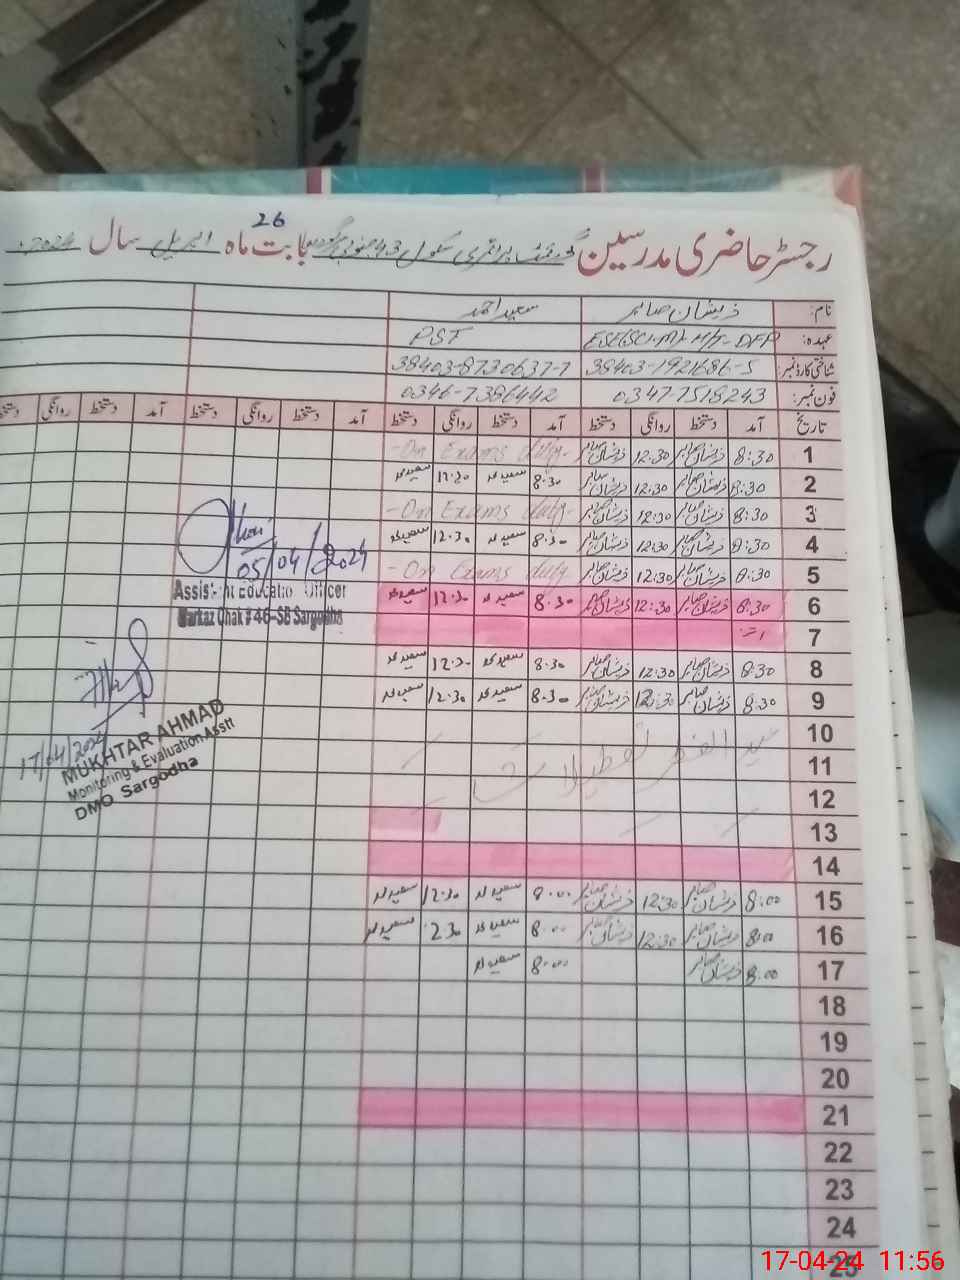 26
رجسٹر حاضری مدرسین گورنمنٹ پرائمری سکول 43 جنوبی سرگودھا بابت ماہ اپریل سال 2024
نام: ذیشان صابر سعید احمد
عہدہ: ESE(SCI-M)-H/T-DFP PST
شناختی کارڈ نمبر: 38403-1921686-5 38403-8730637-7
فون نمبر: 0347-7518243 0346-7386442
تاریخ آمد دستخط روانگی دستخط آمد دستخط روانگی دستخط آمد دستخط روانگی دستخط آمد دستخط
1 8:30 ذیشان صابر 12:30 ذیشان صابر -On Exams duty-
2 8:30 ذیشان صابر 12:30 ذیشان صابر 8:30 سعید احمد 12:30 سعید احمد
3 8:30 ذیشان صابر 12:30 ذیشان صابر -On Exams duty-
4 8:30 ذیشان صابر 12:30 ذیشان صابر 8:30 سعید احمد 12:30 سعید احمد
5 8:30 ذیشان صابر 12:30 ذیشان صابر -On Exams duty
6 8:30 ذیشان صابر 12:30 ذیشان صابر 8:30 سعید احمد 12:30 سعید احمد
7
8 8:30 ذیشان صابر 12:30 ذیشان صابر 8:30 سعید احمد 12:30 سعید احمد
9 8:30 ذیشان صابر 12:30 ذیشان صابر 8:30 سعید احمد 12:30 سعید احمد
10 عید الفطر تعطیلات
11
12
13
14
15 8:00 ذیشان صابر 12:30 ذیشان صابر 8:00 سعید احمد 12:30 سعید احمد
16 8:00 ذیشان صابر 12:30 ذیشان صابر 8:00 سعید احمد 2:30 سعید احمد
17 8:00 ذیشان صابر 8:00 سعید احمد
18
19
20
21
22
23
24
25
05/04/2024
Assistant Education Officer
Markaz Chak # 46-SB Sargodha
17/04/2024
MUKHTAR AHMAD
Monitoring & Evaluation Asstt
DMO Sargodha
17-04-24 11:56